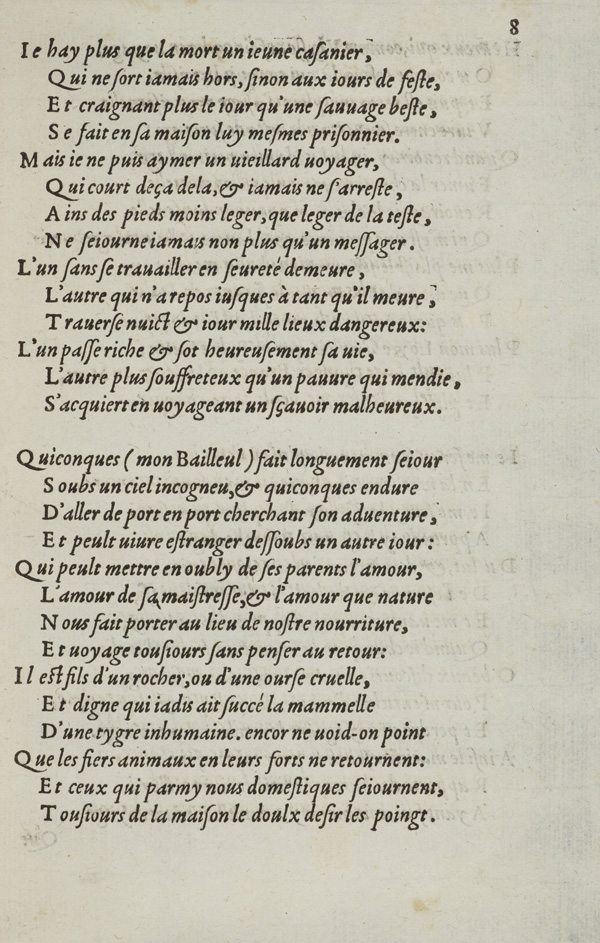 8
Ie hay plus que la mort un ieune caſanier,
Qui ne ſort iamais hors, ſinon aux iours de feſte,
Et craignant plus le iour qu'une ſauuage beſte,
Se fait en ſa maiſon luy meſmes priſonnier.
Mais ie ne puis aymer un uieillard uoyager,
Qui court deça dela, & iamais ne ſ'arreſte,
Ains des pieds moins leger, que leger de la teſte,
Ne ſeiourne iamais non plus qu'un meſſager.
L'un ſans ſe trauailler en ſeureté demeure,
L'autre qui n'a repos iuſques à tant qu'il meure,
Trauerſe nuict & iour mille lieux dangereux:
L'un paſſe riche & ſot heureuſement ſa uie,
L'autre plus ſouffreteux qu'un pauure qui mendie,
S'acquiert en uoyageant un ſçauoir malheureux.
Quiconques (mon Bailleul) fait longuement ſeiour
Soubs un ciel incogneu, & quiconques endure
D'aller de port en port cherchant ſon aduenture,
Et peult uiure eſtranger deſſoubs un autre iour:
Qui peult mettre en oubly de ſes parents l'amour,
L'amour de ſa maiſtreſſe, & l'amour que nature
Nous fait porter au lieu de noſtre nourriture,
Et uoyage touſiours ſans penſer au retour:
Il eſt fils d'un rocher, ou d'une ourſe cruelle,
Et digne qui iadis ait ſuccé la mammelle
D'une tygre inhumaine. encor ne uoid-on point
Que les fiers animaux en leurs forts ne retournent:
Et ceux qui parmy nous domeſtiques ſeiournent,
Touſiours de la maiſon le doulx deſir les poingt.